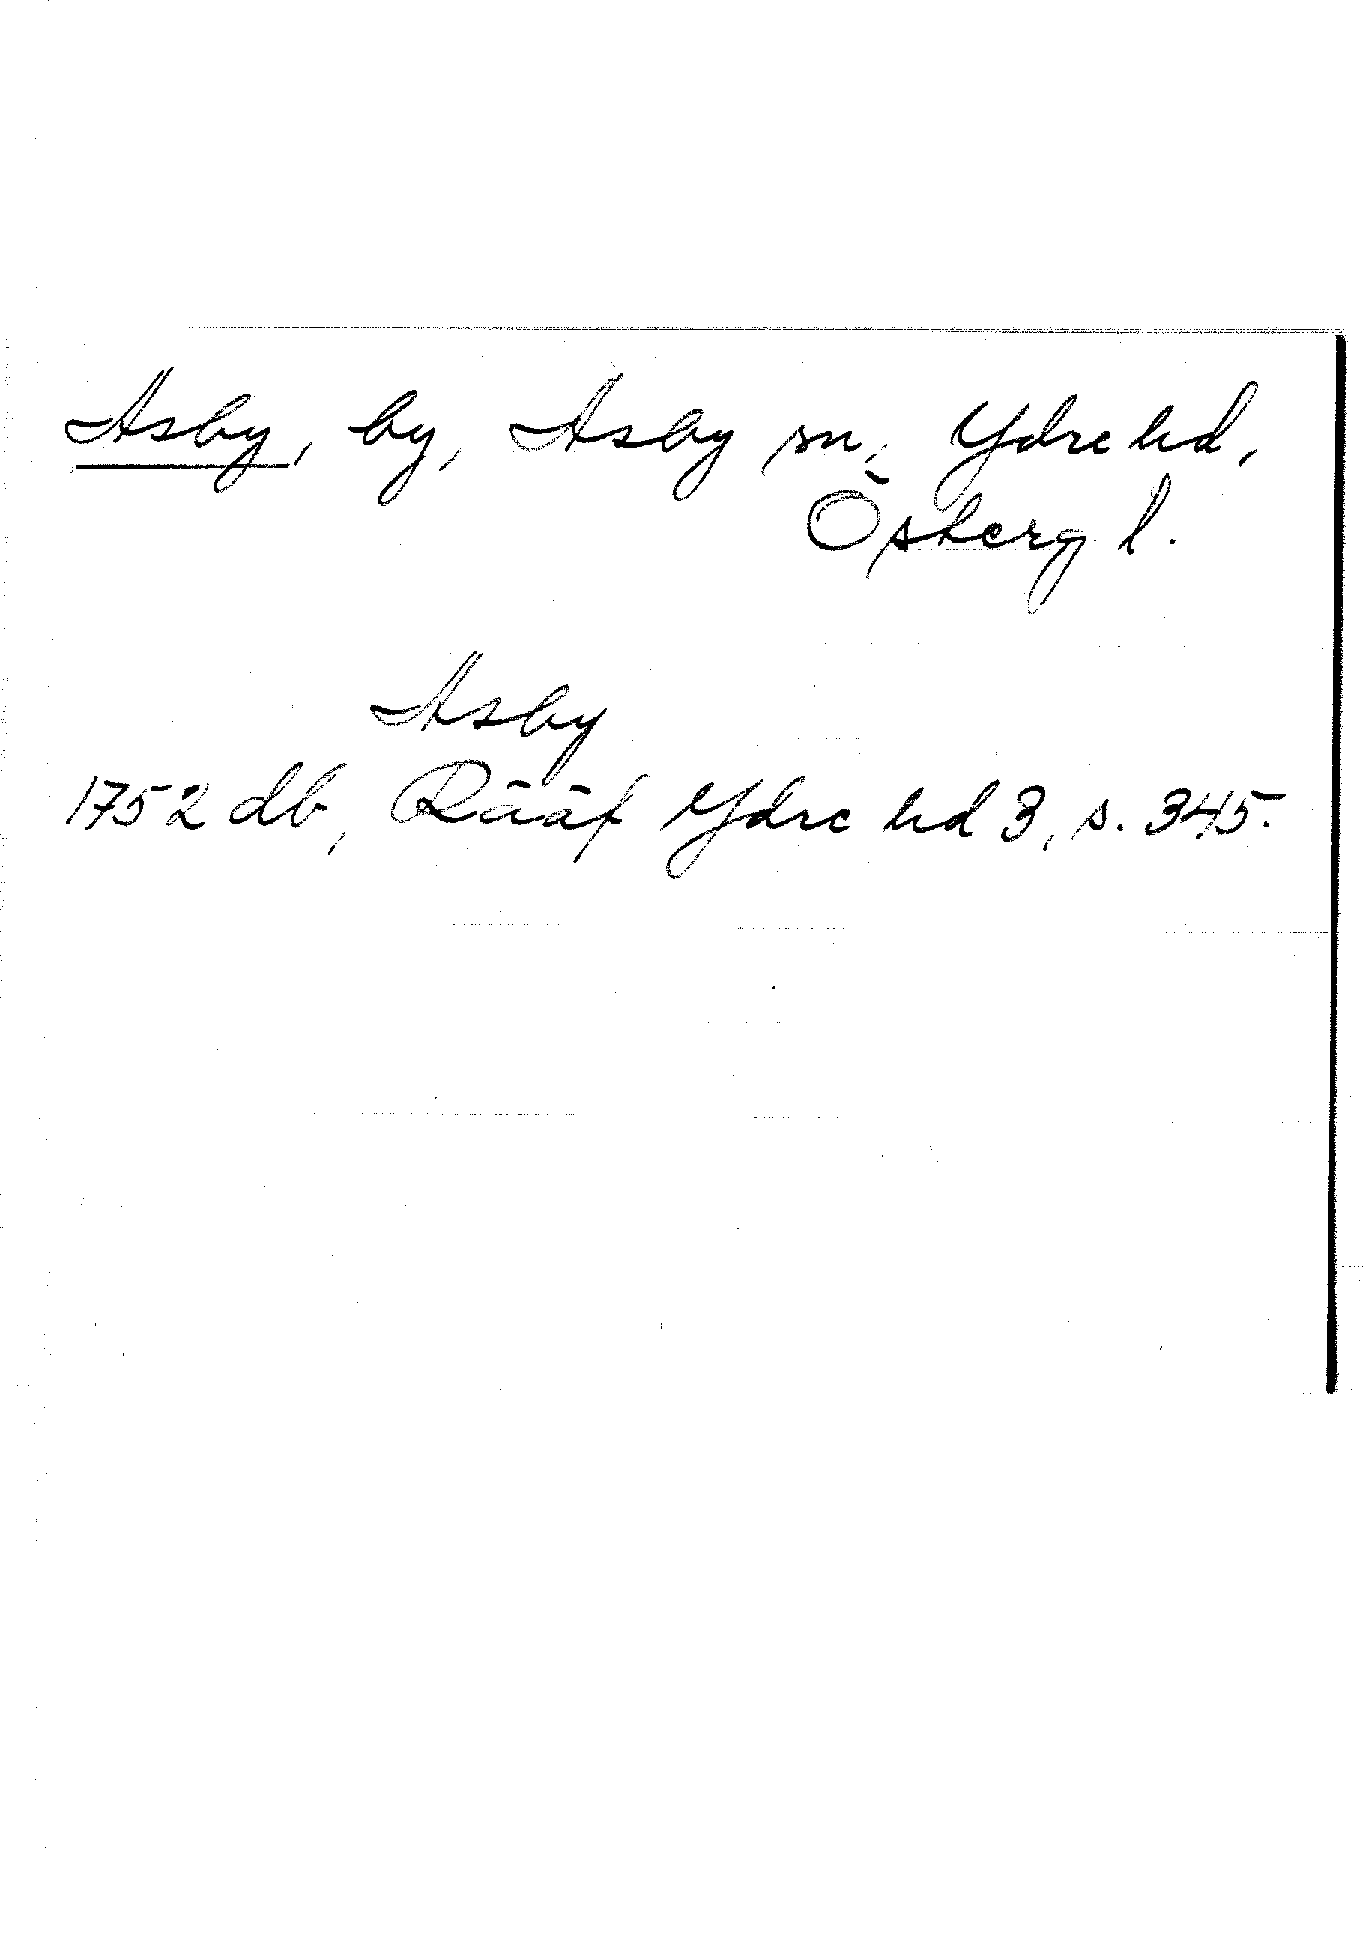 Asby, by, Asby sn, Ydre hd,
Österg l.
Asby
1752 db, Rääf Ydre hd 3, s. 345.